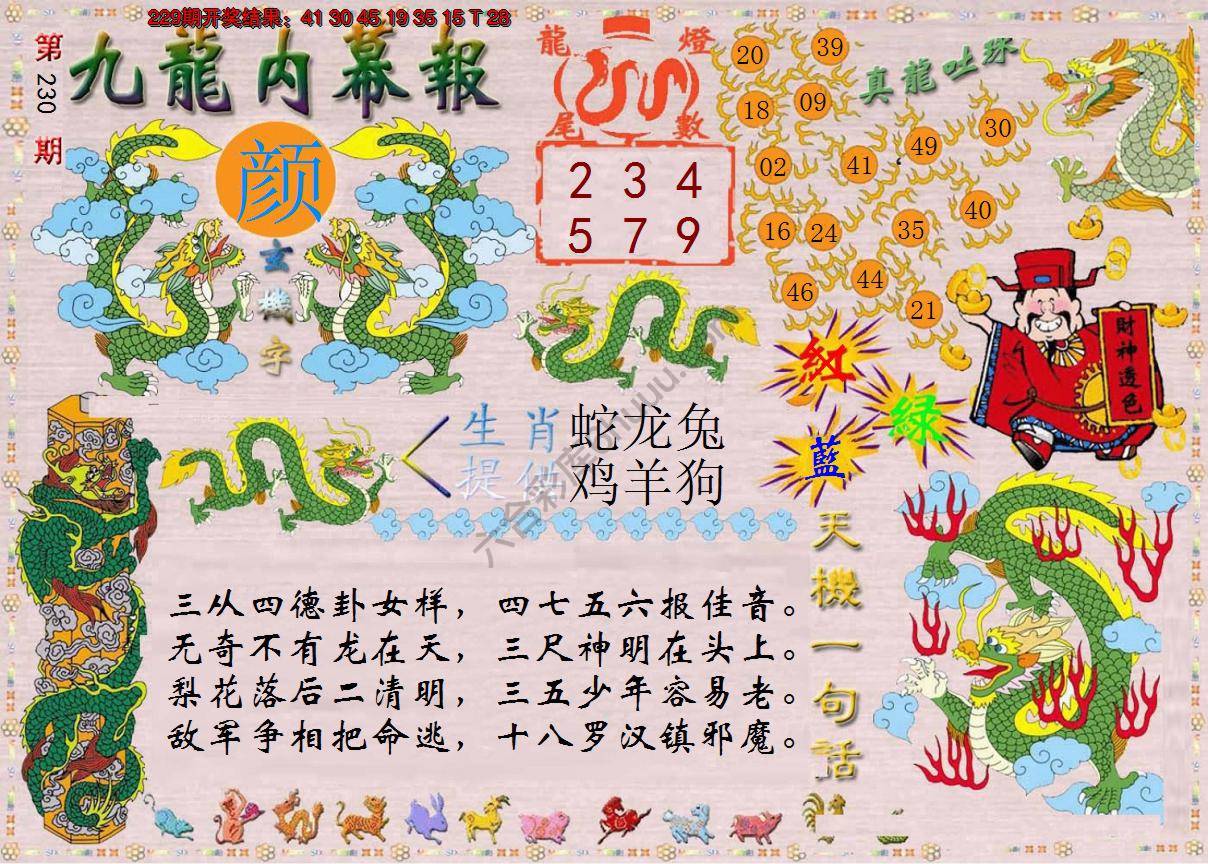 229期开奖结果：41 30 45 19 35 15 T 28
第230期
九龍内幕報
颜
玄機字
龍燈
尾數
2 3 4
5 7 9
真龍吐珠
20 39
18 09
49 30
02 41
40
16 24 35
46 44
21
財神透色
紅
綠
藍
生肖 蛇龙兔
提供 鸡羊狗
三从四德卦女样，四七五六报佳音。
无奇不有龙在天，三尺神明在头上。
梨花落后二清明，三五少年容易老。
敌军争相把命逃，十八罗汉镇邪魔。
天機一句話